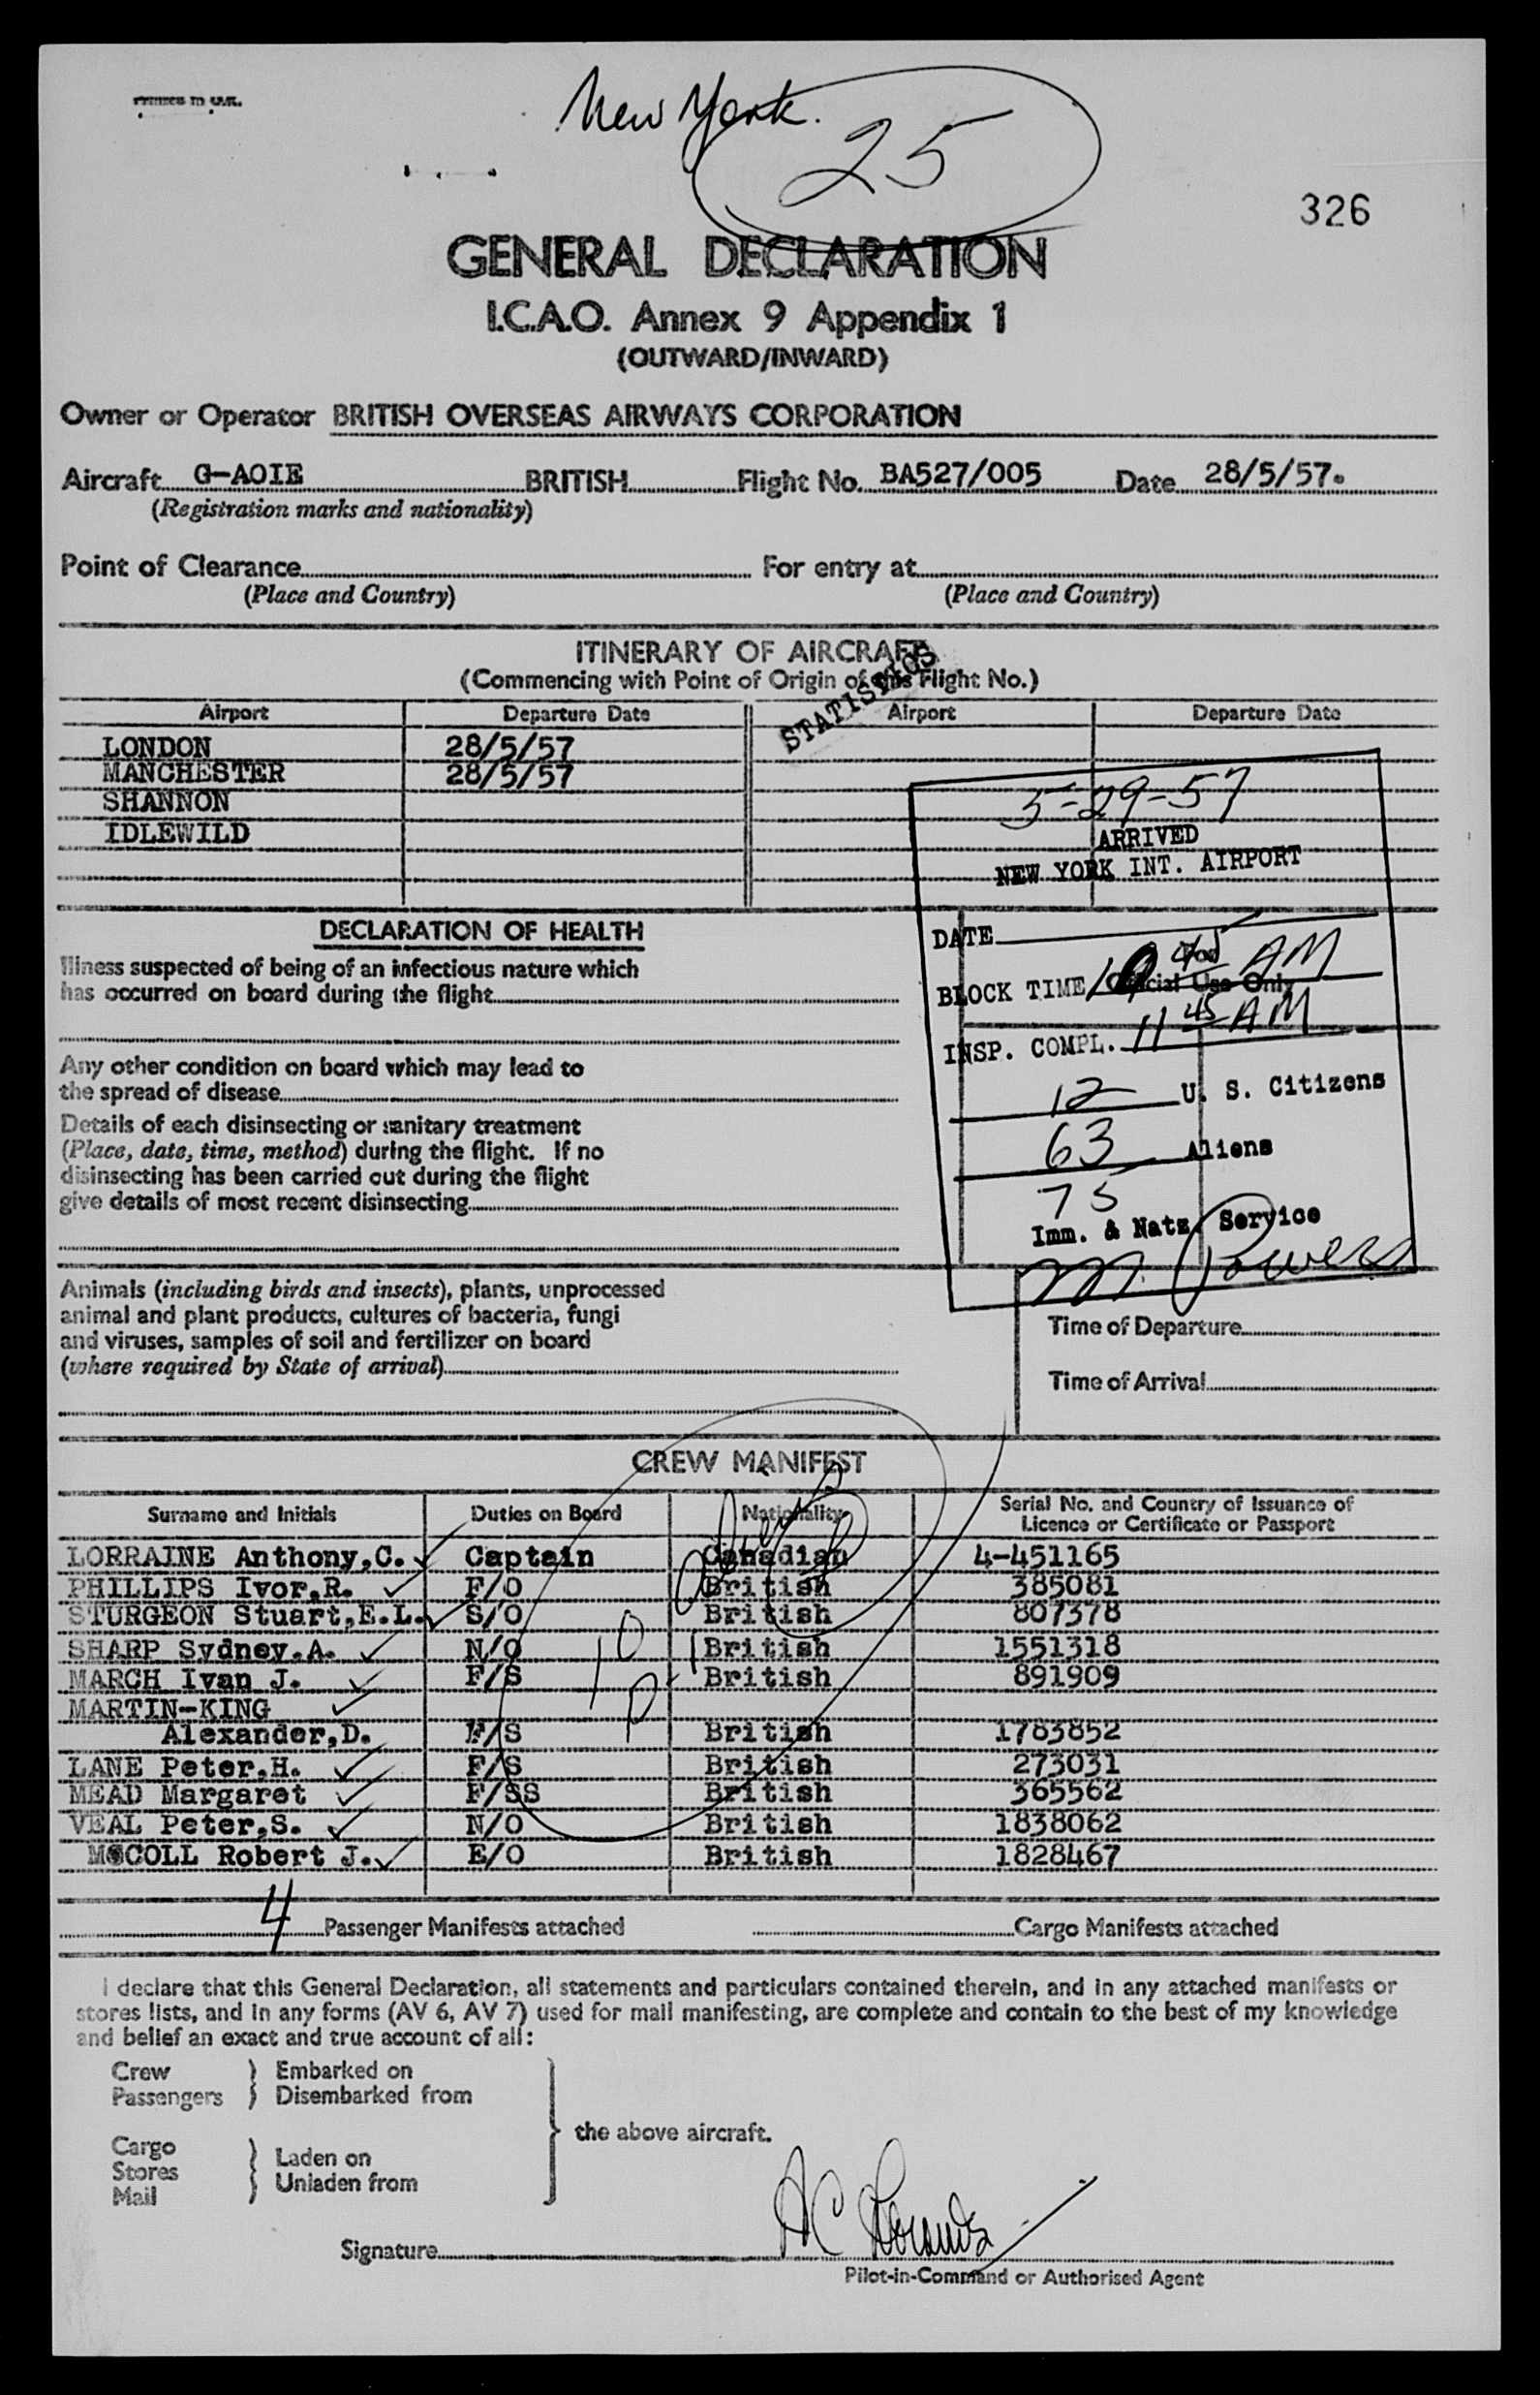 PRINTED IN U.K.
New York.
25
326
GENERAL DECLARATION
I.C.A.O. Annex 9 Appendix 1
(OUTWARD/INWARD)
Owner or Operator BRITISH OVERSEAS AIRWAYS CORPORATION
Aircraft G-AOIE BRITISH Flight No. BA527/005 Date 28/5/57.
(Registration marks and nationality)
Point of Clearance For entry at
(Place and Country) (Place and Country)
ITINERARY OF AIRCRAFT
(Commencing with Point of Origin of this Flight No.)
STATISTICS
Airport Departure Date Airport Departure Date
LONDON 28/5/57
MANCHESTER 28/5/57
SHANNON
IDLEWILD
5-29-57
ARRIVED
NEW YORK INT. AIRPORT
DATE
BLOCK TIME 10 45 AM
For
Official Use Only
INSP. COMPL. 11 45 AM
12 U. S. Citizens
63 Aliens
75
Imm. & Natz. Service
M. Powers
DECLARATION OF HEALTH
Illness suspected of being of an infectious nature which
has occurred on board during the flight
Any other condition on board which may lead to
the spread of disease
Details of each disinsecting or sanitary treatment
(Place, date, time, method) during the flight. If no
disinsecting has been carried out during the flight
give details of most recent disinsecting
Animals (including birds and insects), plants, unprocessed
animal and plant products, cultures of bacteria, fungi
and viruses, samples of soil and fertilizer on board
(where required by State of arrival)
Time of Departure
Time of Arrival
CREW MANIFEST
Surname and Initials Duties on Board Nationality Serial No. and Country of Issuance of
Licence or Certificate or Passport
LORRAINE Anthony,C. Captain Canadian 4-451165
PHILLIPS Ivor,R. F/O British 385081
STURGEON Stuart,E.L. S/O British 807378
SHARP Sydney.A. N/O British 1551318
MARCH Ivan J. F/S British 891909
MARTIN-KING
Alexander,D. F/S British 1783852
LANE Peter.H. F/S British 273031
MEAD Margaret F/SS British 365562
VEAL Peter,S. N/O British 1838062
McCOLL Robert J. E/O British 1828467
10
4 Passenger Manifests attached Cargo Manifests attached
I declare that this General Declaration, all statements and particulars contained therein, and in any attached manifests or
stores lists, and in any forms (AV 6, AV 7) used for mail manifesting, are complete and contain to the best of my knowledge
and belief an exact and true account of all:
Crew Embarked on
Passengers Disembarked from
the above aircraft.
Cargo
Stores Laden on
Mail Unladen from
A C Loraine
Signature
Pilot-in-Command or Authorised Agent